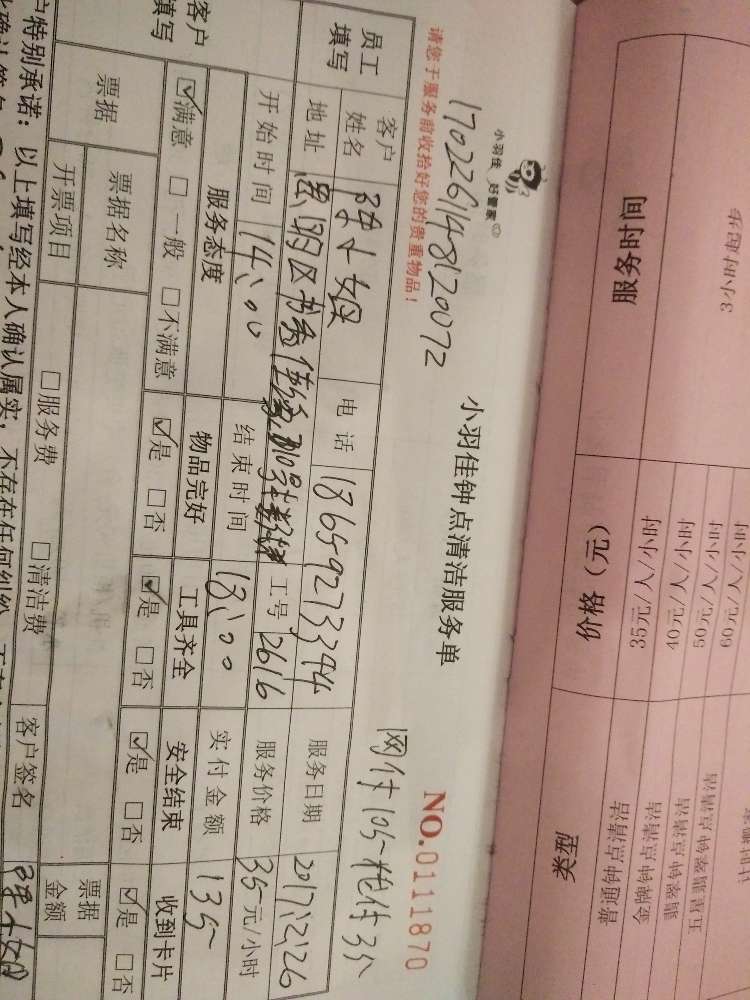 服务时间 价格（元） 类型
3小时起步
35元/人/小时 普通钟点清洁
40元/人/小时 金牌钟点清洁
50元/人/小时
60元/人/小时
小羽佳 好管家
17022614812072
小羽佳钟点清洁服务单
请您于服务前收拾好您的贵重物品！
NO.0111870
网付105 抢付35
员工填写
客户姓名 陈小姐 电话 18659273344 服务日期 2017.2.26
地址 思明区 工号 2616 服务价格 35元/小时
开始时间 14:00 结束时间 18:00 实付金额 135
客户填写
服务态度 物品完好 工具齐全 安全结束 收到卡片
☑满意 □一般 □不满意 ☑是 □否 ☑是 □否 ☑是 □否 ☑是 □否
票据 票据名称 票据金额
开票项目 □服务费 □清洁费 客户签名 陈小姐
户特别承诺：以上填写经本人确认属实，不存在任何纠纷